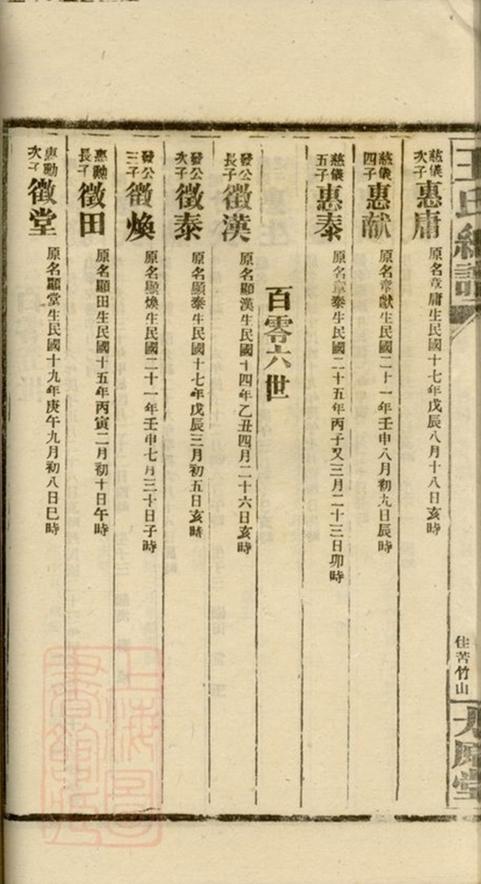 王氏
住苦竹山
堂
慈儀次子 惠庸 原名章庸生民國十七年戊辰八月十八日亥時
慈儀四子 惠献 原名章献生民國二十一年壬申八月初九日辰時
慈儀五子 惠泰 原名章泰生民國二十五年丙子又三月二十三日卯時
百零六世
發公長子 徵漢 原名顯漢生民國十四年乙丑四月二十六日亥時
發公次子 徵泰 原名顯泰生民國十七年戊辰三月初五日亥時
發公三子 徵煥 原名顯煥生民國二十一年壬申七月三十日子時
惠勳長子 徵田 原名顯田生民國十五年丙寅二月初十日午時
惠勳次子 徵堂 原名顯堂生民國十九年庚午九月初八日巳時
上海圖書館藏